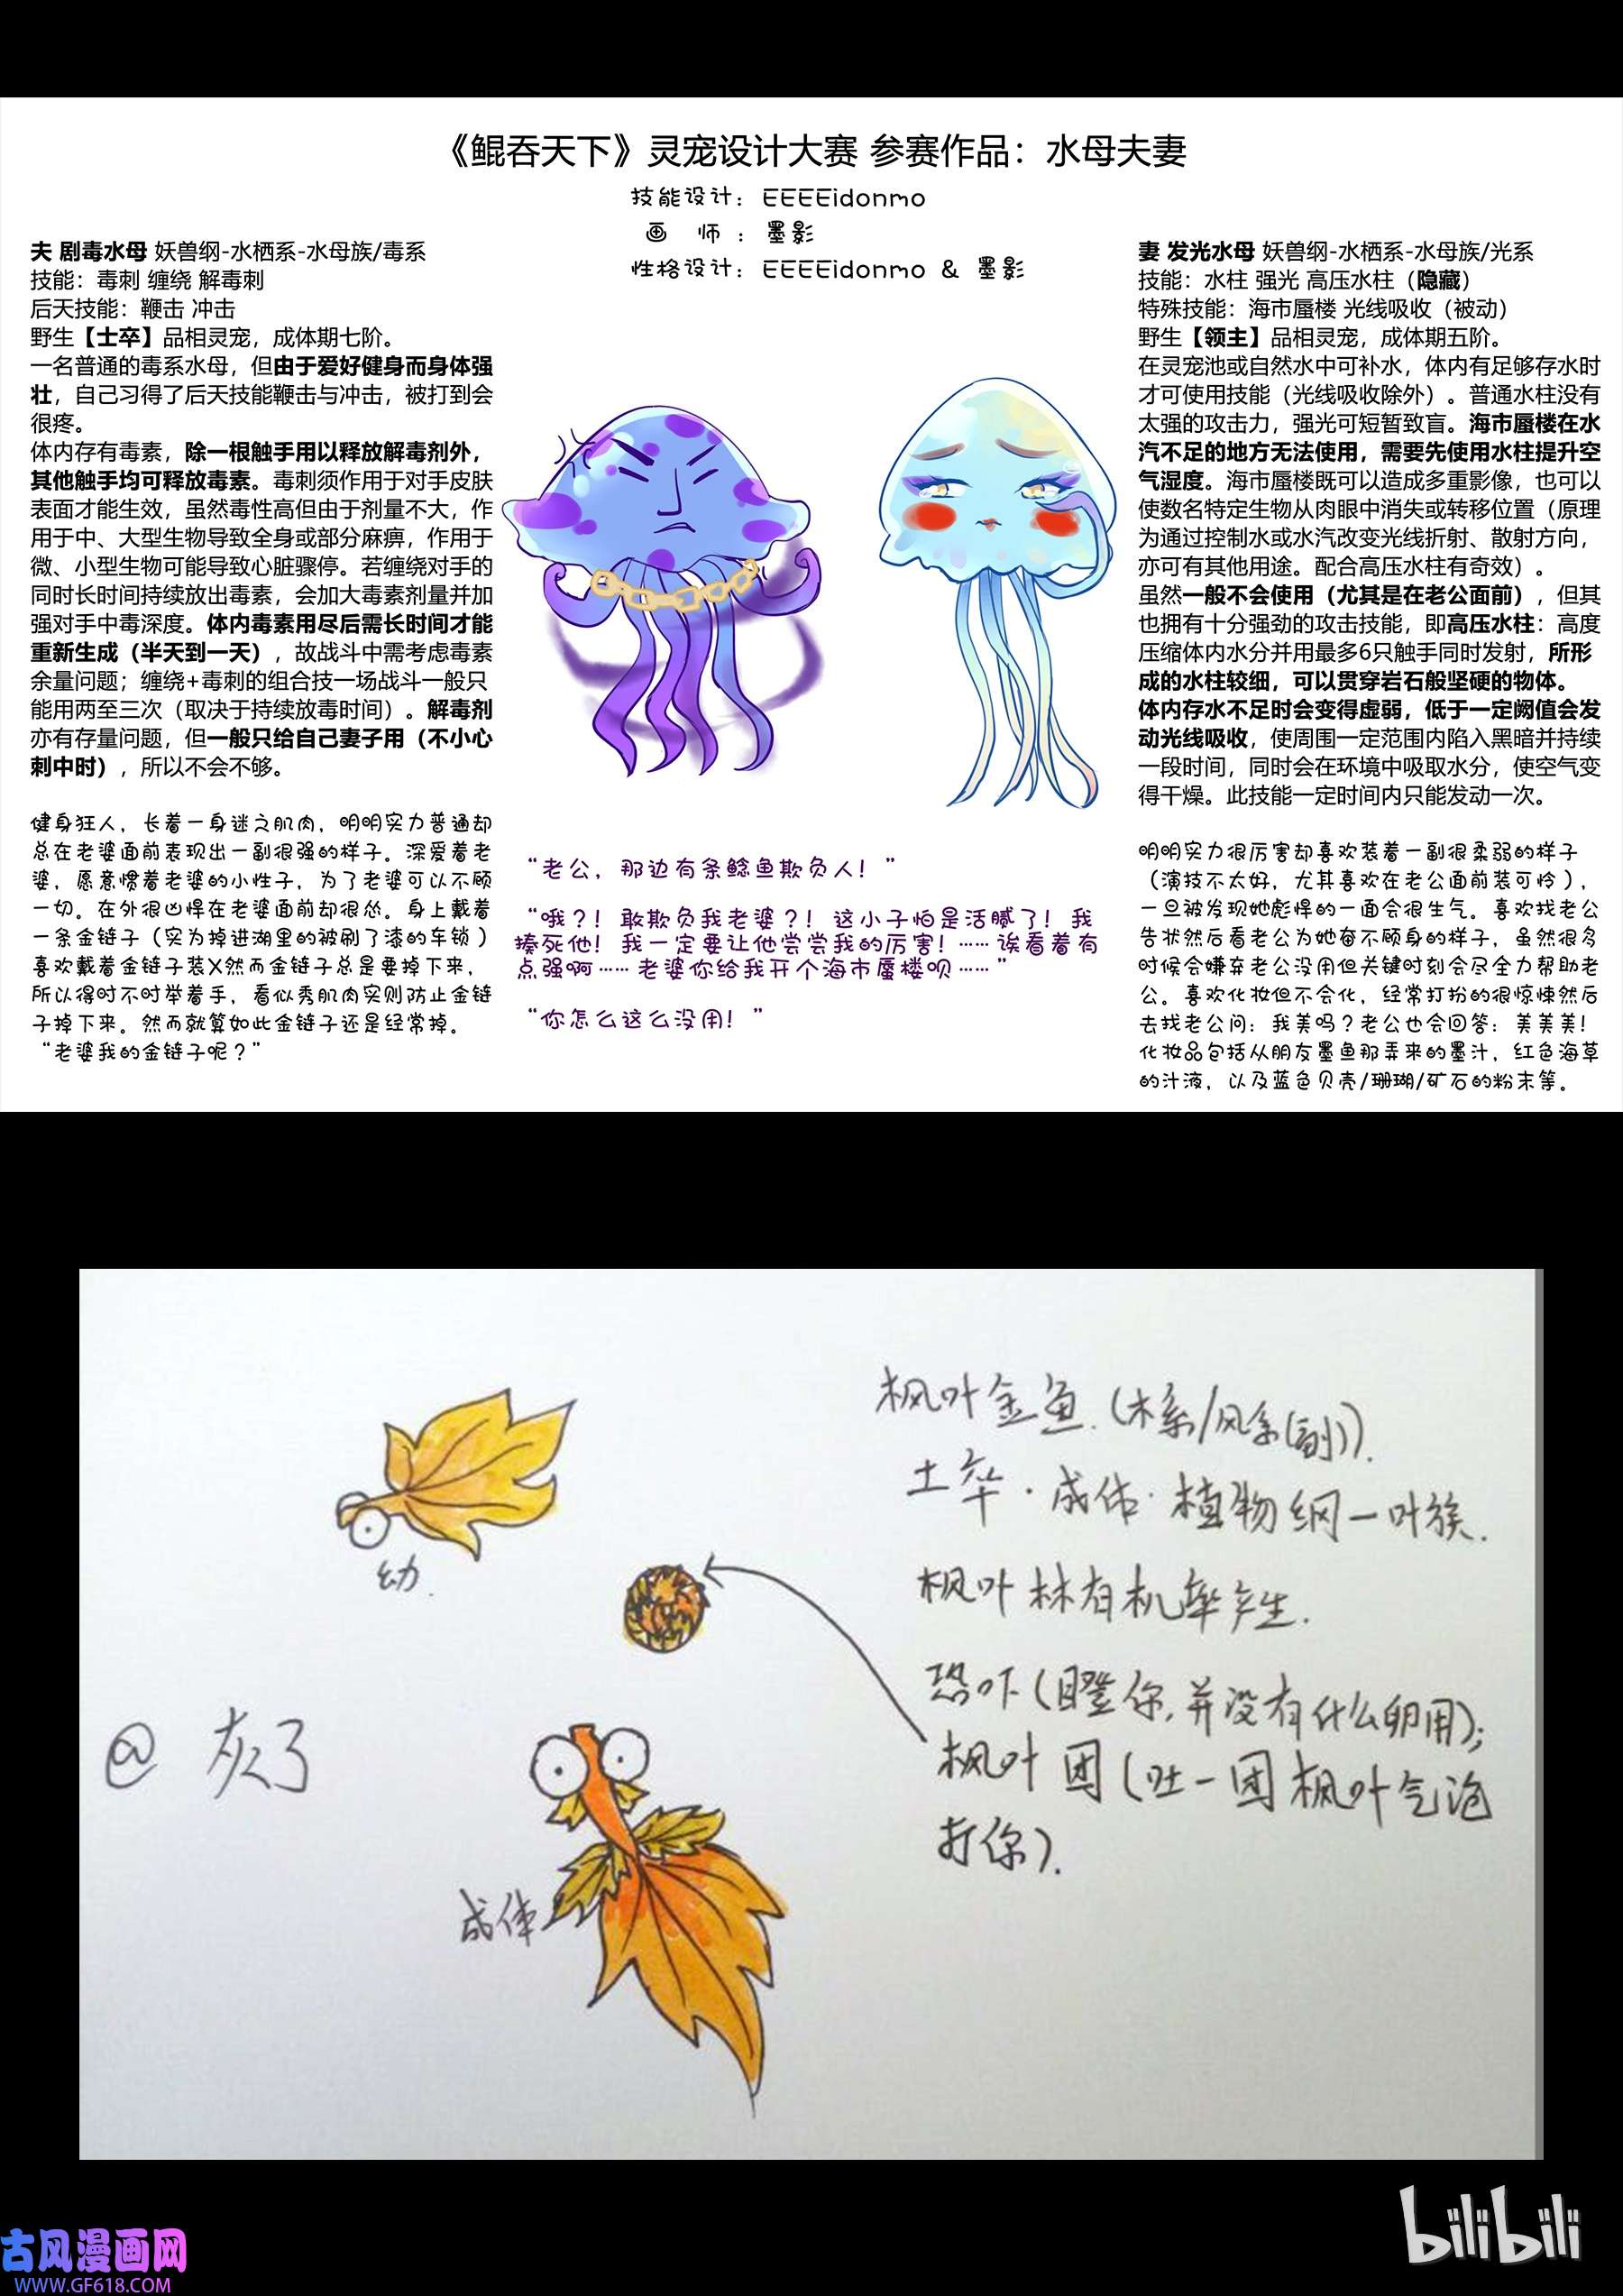 《鲲吞天下》灵宠设计大赛 参赛作品：水母夫妻
技能设计：EEEEidonmo
画 师：墨影
性格设计：EEEEidonmo & 墨影
夫 剧毒水母 妖兽纲-水栖系-水母族/毒系
技能：毒刺 缠绕 解毒刺
后天技能：鞭击 冲击
野生【士卒】品相灵宠，成体期七阶。
一名普通的毒系水母，但由于爱好健身而身体强
壮，自己习得了后天技能鞭击与冲击，被打到会
很疼。
体内存有毒素，除一根触手用以释放解毒剂外，
其他触手均可释放毒素。毒刺须作用于对手皮肤
表面才能生效，虽然毒性高但由于剂量不大，作
用于中、大型生物导致全身或部分麻痹，作用于
微、小型生物可能导致心脏骤停。若缠绕对手的
同时长时间持续放出毒素，会加大毒素剂量并加
强对手中毒深度。体内毒素用尽后需长时间才能
重新生成（半天到一天），故战斗中需考虑毒素
余量问题；缠绕+毒刺的组合技一场战斗一般只
能用两至三次（取决于持续放毒时间）。解毒剂
亦有存量问题，但一般只给自己妻子用（不小心
刺中时），所以不会不够。
健身狂人，长着一身迷之肌肉，明明实力普通却
总在老婆面前表现出一副很强的样子。深爱着老
婆，愿意惯着老婆的小性子，为了老婆可以不顾
一切。在外很凶悍在老婆面前却很怂。身上戴着
一条金链子（实为掉进湖里的被刷了漆的车锁）
喜欢戴着金链子装X然而金链子总是要掉下来，
所以得时不时举着手，看似秀肌肉实则防止金链
子掉下来。然而就算如此金链子还是经常掉。
“老婆我的金链子呢？”
“老公，那边有条鲶鱼欺负人！”
“哦？！敢欺负我老婆？！这小子怕是活腻了！我
揍死他！我一定要让他尝尝我的厉害！……诶看着有
点强啊……老婆你给我开个海市蜃楼呗……”
“你怎么这么没用！”
妻 发光水母 妖兽纲-水栖系-水母族/光系
技能：水柱 强光 高压水柱（隐藏）
特殊技能：海市蜃楼 光线吸收（被动）
野生【领主】品相灵宠，成体期五阶。
在灵宠池或自然水中可补水，体内有足够存水时
才可使用技能（光线吸收除外）。普通水柱没有
太强的攻击力，强光可短暂致盲。海市蜃楼在水
汽不足的地方无法使用，需要先使用水柱提升空
气湿度。海市蜃楼既可以造成多重影像，也可以
使数名特定生物从肉眼中消失或转移位置（原理
为通过控制水或水汽改变光线折射、散射方向，
亦可有其他用途。配合高压水柱有奇效）。
虽然一般不会使用（尤其是在老公面前），但其
也拥有十分强劲的攻击技能，即高压水柱：高度
压缩体内水分并用最多6只触手同时发射，所形
成的水柱较细，可以贯穿岩石般坚硬的物体。
体内存水不足时会变得虚弱，低于一定阙值会发
动光线吸收，使周围一定范围内陷入黑暗并持续
一段时间，同时会在环境中吸取水分，使空气变
得干燥。此技能一定时间内只能发动一次。
明明实力很厉害却喜欢装着一副很柔弱的样子
（演技不太好，尤其喜欢在老公面前装可怜），
一旦被发现她彪悍的一面会很生气。喜欢找老公
告状然后看老公为她奋不顾身的样子，虽然很多
时候会嫌弃老公没用但关键时刻会尽全力帮助老
公。喜欢化妆但不会化，经常打扮的很惊悚然后
去找老公问：我美吗？老公也会回答：美美美！
化妆品包括从朋友墨鱼那弄来的墨汁，红色海草
的汁液，以及蓝色贝壳/珊瑚/矿石的粉末等。
枫叶金鱼.(木系/风系(副)).
士卒·成体·植物纲一叶族.
枫叶林有机率产生.
恐吓(瞪你,并没有什么卵用);
枫叶团(吐一团枫叶气泡
打你).
幼.
@灰了
成体
bilibili
古风漫画网
WWW.GF618.COM